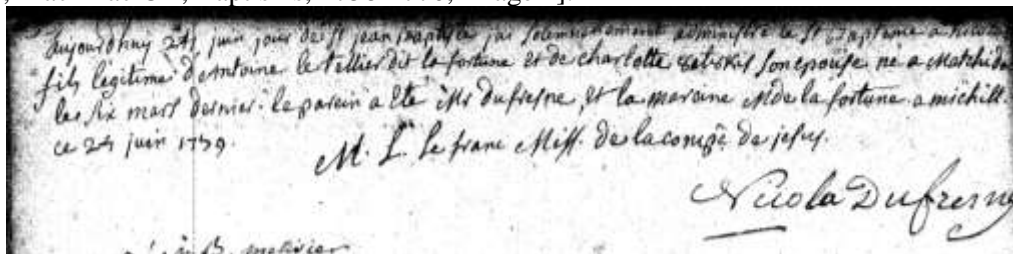 aujourdhuy 24 juin jour de st jean baptiste jai solemnellement administré le st Baptême a
fils légitime d'antoine le tellier dit la fortune et de charlotte son epouse né a
les six mars dernier. le parein a eté Mr dufresne et la mareine Mde la fortune. a michill.
ce 24 juin 1759.
M. L. le franc Miss. de la compe de jesus.
Nicola Dufresne